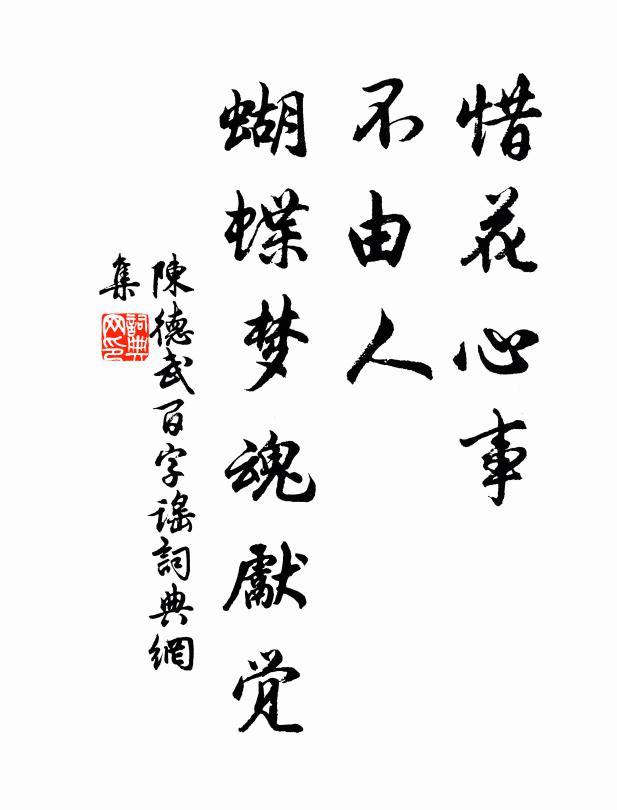 惜花心事
不由人
蝴蝶梦魂獻觉
陳德武百字谣詞典網
集
詞典网印